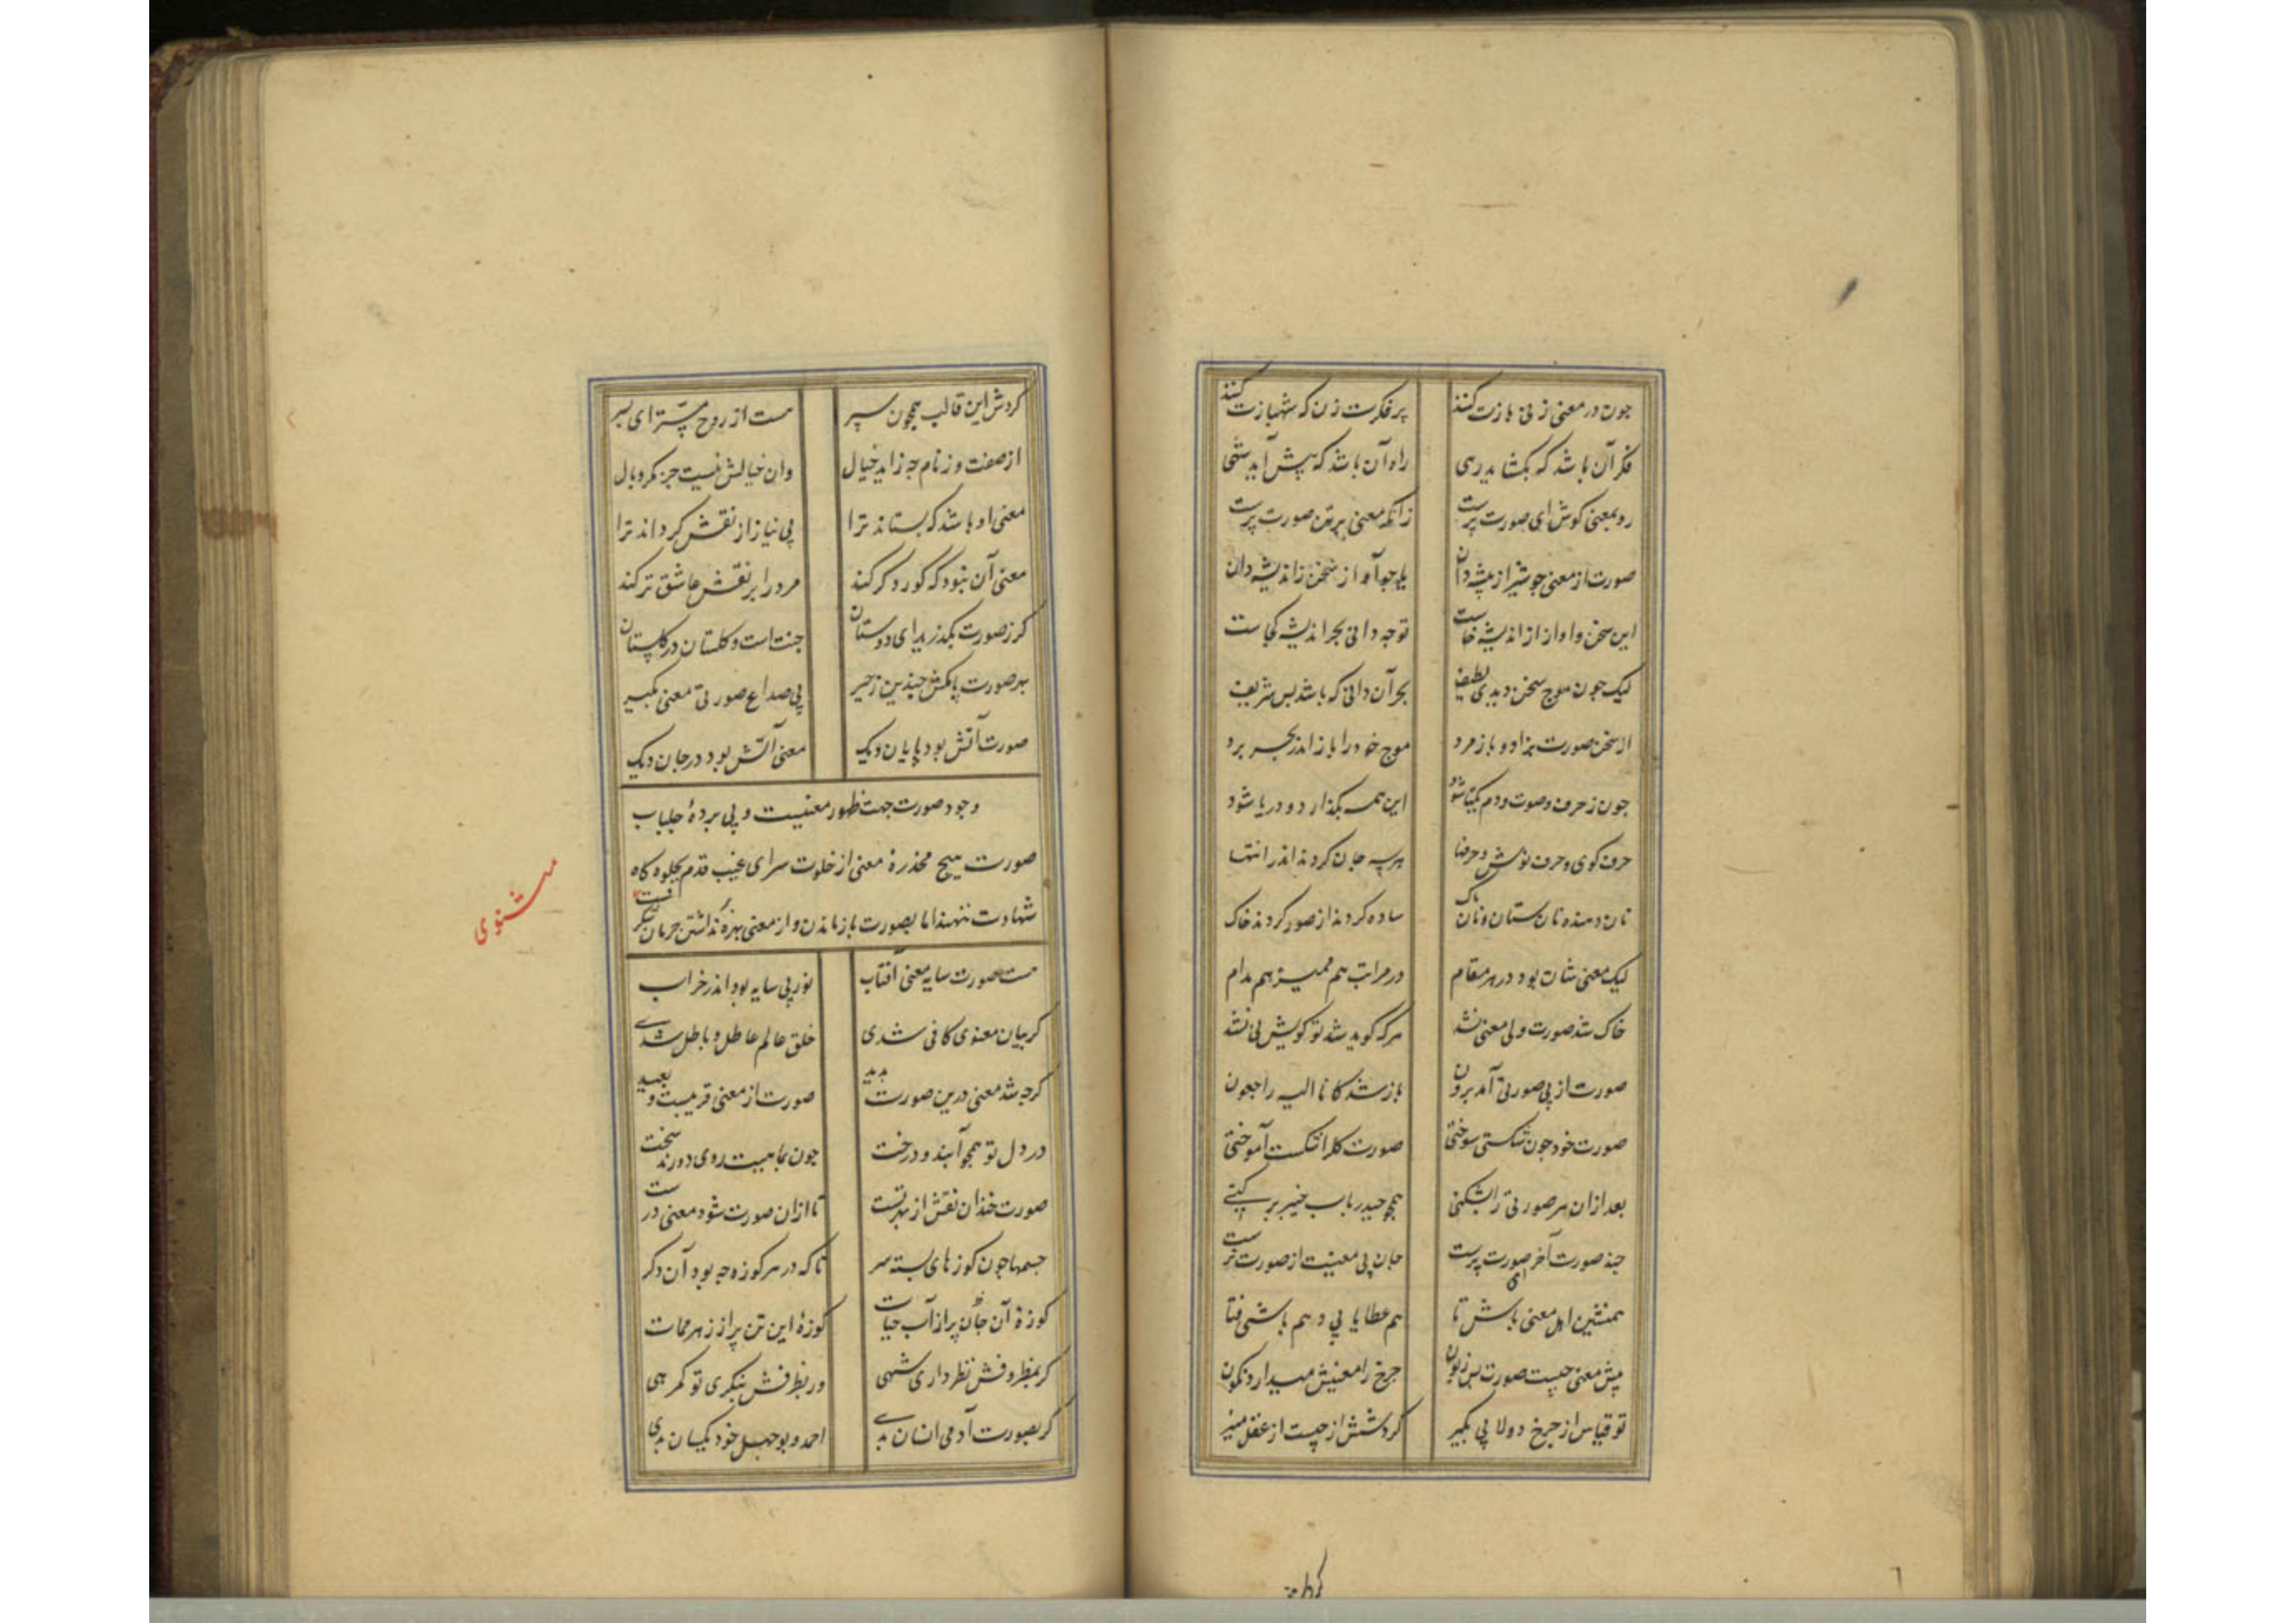 چون در معنی زنی بازت کنند پر فکرت زن که شهبازت کنند
فکر آن باشد که بکشاید رهی راه آن باشد که پیش آید شهی
رو بمعنی کوش ای صورت پرست زانکه معنی بر تن صورت پرست
صورت از معنی چو شیر از بیشه دان یا چو آواز سخن ز اندیشه دان
این سخن و اواز از اندیشه خاست تو چه دانی بحر اندیشه کجاست
لیک چون موج سخن دیدی لطیف بحر آن دانی که باشد بس شریف
از سخن صورت بزاد و باز مرد موج خود را باز اندر بحر برد
چون ز حرف و صوت و دم یکتا شود این همه بکذارد و دریا شود
حرف کوی و حرف نوش و حرفها هر سه جان کردند اندر انتها
نان دهنده نان ستان و نان پاک ساده کردند از صور کردند خاک
لیک معنی شان بود در هر مقام در مراتب هم ممیز هم مدام
خاک شد صورت ولی معنی نشد هر که کوید شد تو کویش نی نشد
صورت از بی صورتی آمد برون باز شد کانا الیه راجعون
صورت خود چون شکستی سوختی صورت کل را شکست آموختی
بعد ازان هر صورتی را بشکنی همچو حیدر باب خیبر بر کنی
چند صورت آخر ای صورت پرست جان بی معنیت از صورت نرست
همنشین اهل معنی باش تا هم عطا یابی و هم باشی فتا
پیش معنی چیست صورت بس زبون چرخ را معنیش میدارد نکون
تو قیاس از چرخ دولابی بکیر کردشش از چیست از عقل منیر
کردش این قالب همچون سپر هست از روح مستر ای پسر
از صفت وز نام چه زاید خیال وان خیالش نیست جز مکر و بال
معنی او باشد که بستاند ترا بی نیاز از نقش کرداند ترا
معنی آن نبود که کور و کر کند مرد را بر نقش عاشق تر کند
کر ز صورت بکذرید ای دوستان جنت است و کلستان در کلستان
بهر صورت پا مکش چندین زحیر بی صداع صورتی معنی بکیر
صورت آتش بود پایان دیک معنی آتش بود در جان دیک
وجود صورت جهت ظهور معنیست و بی پردهٔ جلباب
صورت هیچ مخدرهٔ معنی از خلوت سرای غیب قدم بجلوه کاه
شهادت ننهند اما بصورت باز ماندن و از معنی بهره نداشتن حرمان شکرفست
مثنوی
هست صورت سایه معنی آفتاب نور بی سایه بود اندر خراب
کر بیان معنوی کافی شدی خلق عالم عاطل و باطل شدی
کرچه شد معنی درین صورت پدید صورت از معنی قریبست و بعید
در دل تو همچو آبند و درخت چون بماهیت روی دورند سخت
صورت خندان نقش از بهر تست تا ازان صورت شود معنی درست
جسمها چون کوزهای بسته سر تا که در هر کوزه چه بود آن نکر
کوزهٔ آن جان پر از آب حیات کوزهٔ این تن پر از زهر ممات
کر بمظروفش نظر داری شهی ور بظرفش بنکری تو کمرهی
کر بصورت آدمی انسان بدی احمد و بوجهل خود یکسان بدی